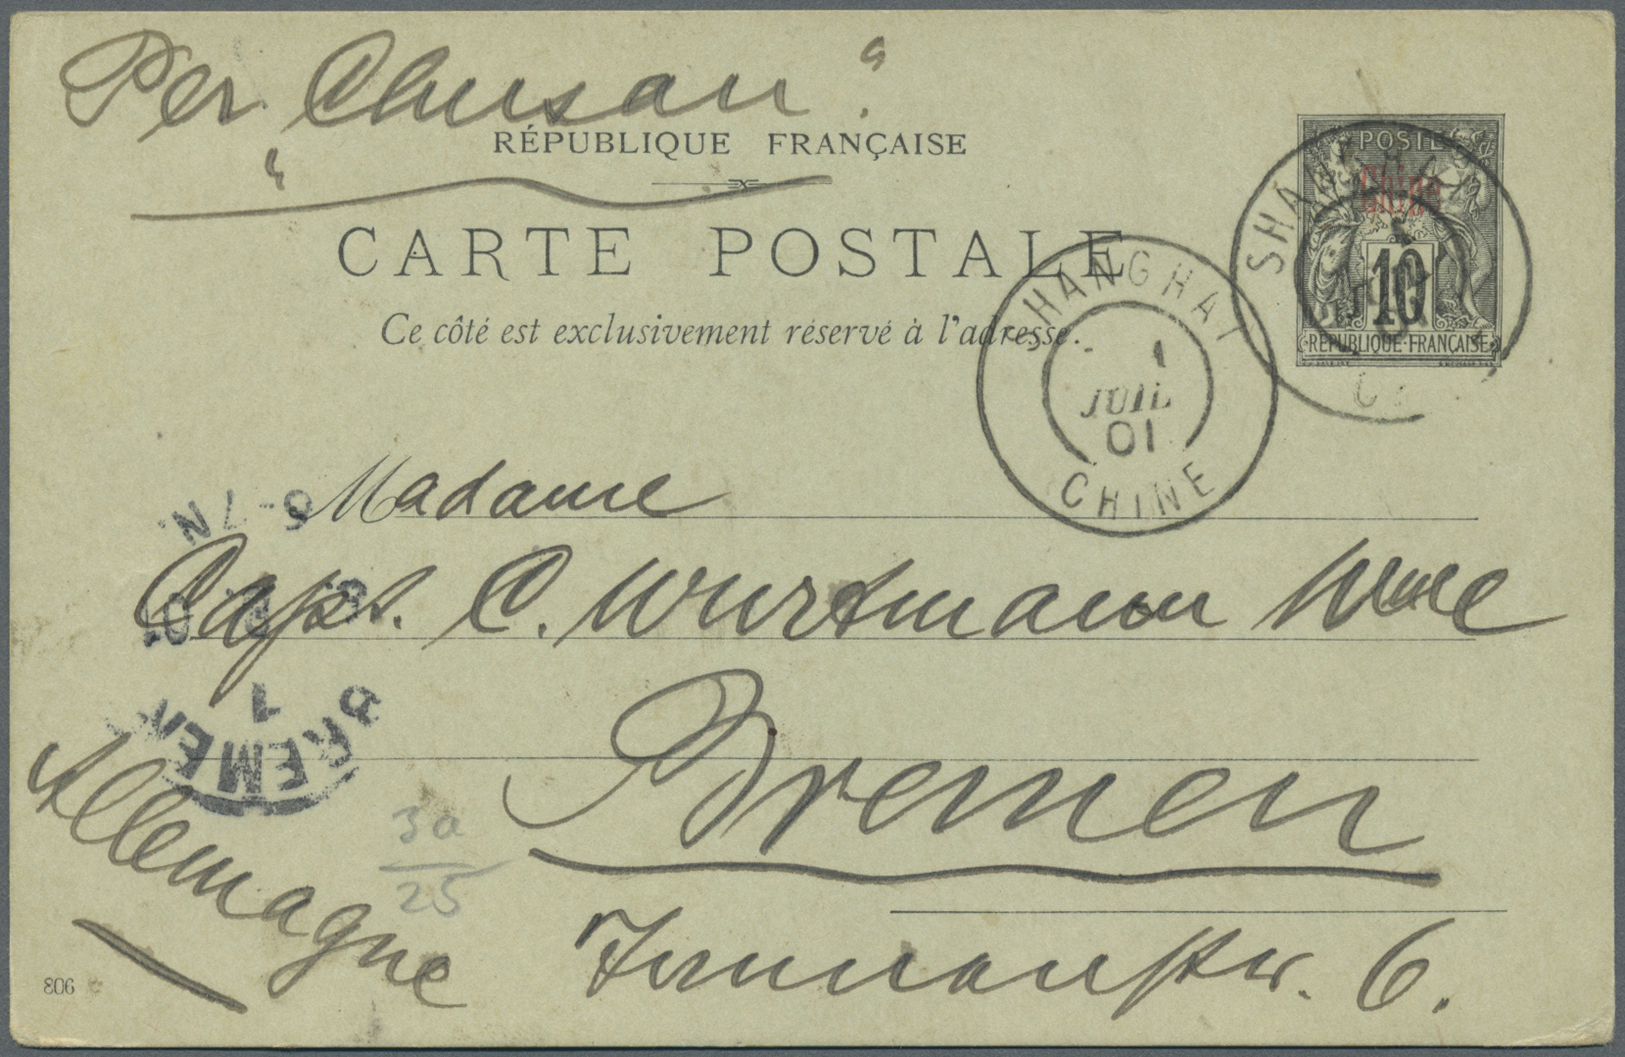 Per "Chusan"
RÉPUBLIQUE FRANÇAISE
CARTE POSTALE
Ce côté est exclusivement réservé à l'adresse.
POSTE
Chine
10
RÉPUBLIQUE FRANÇAISE
SHANGHAI
1
JUIL
01
CHINE
Madame
Capt. C. Wurthmann Wwe
Bremen
Allemagne
6-7N.
BREMEN
1
3a
25
6.
806